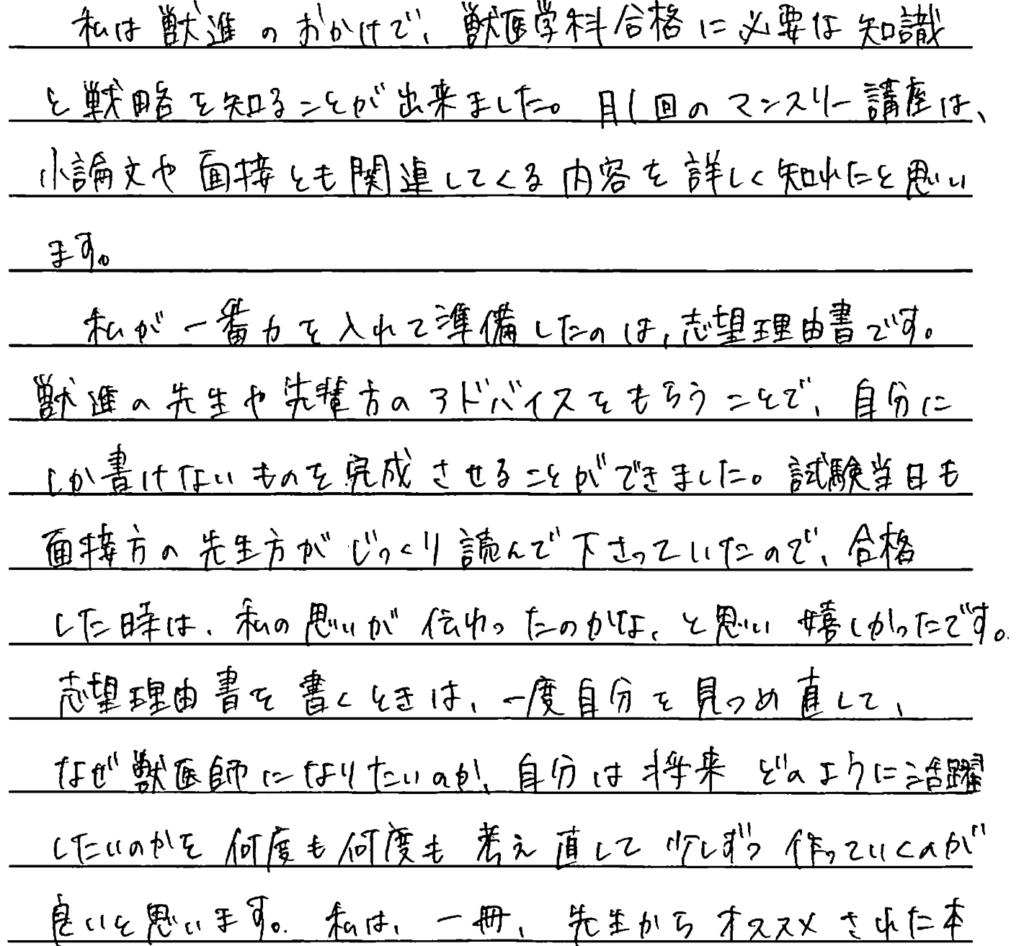 私は獣進のおかげで、獣医学科合格に必要な知識
と戦略を知ることが出来ました。月1回のマンスリー講座は、
小論文や面接とも関連してくる内容を詳しく知れたと思い
ます。
私が一番力を入れて準備したのは、志望理由書です。
獣進の先生や先輩方のアドバイスをもらうことで、自分に
しか書けないものを完成させることができました。試験当日も
面接方の先生方がじっくり読んで下さっていたので、合格
した時は、私の思いが伝わったのかな、と思い嬉しかったです。
志望理由書を書くときは、一度自分を見つめ直して、
なぜ獣医師になりたいのか、自分は将来どのように活躍
したいのかを何度も何度も考え直して少しずつ作っていくのが
良いと思います。私は、一冊、先生からオススメされた本